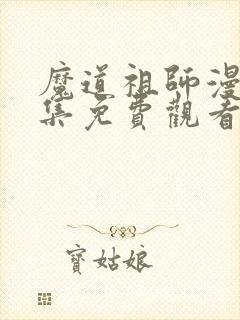 魔道祖師漫
集免費觀看
寶姑娘